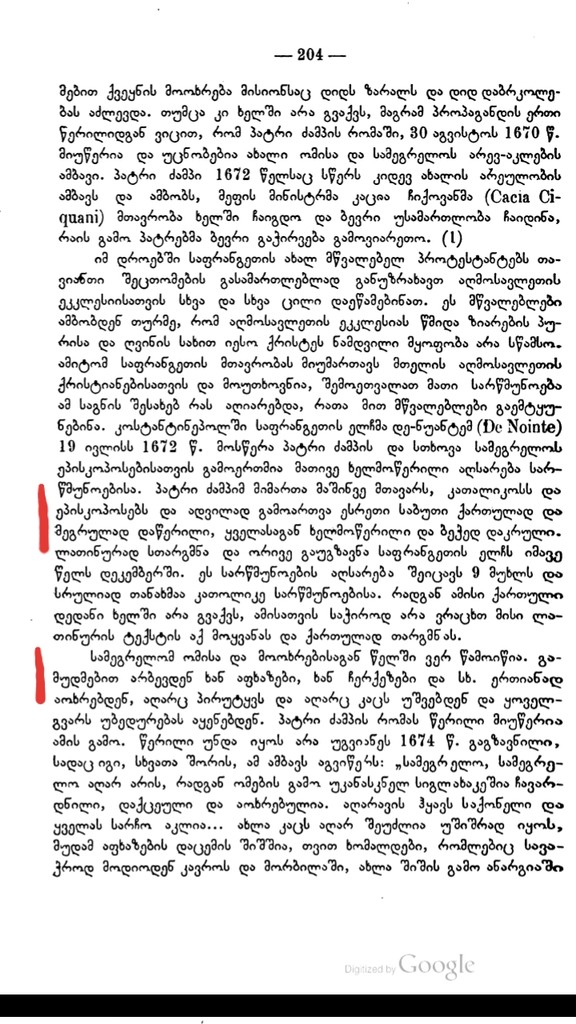 — 204 —
მებით ქვეყნის მოოხრება მისიონსაც დიდს ზარალს და დიდ დაბრკოლე-
ბას აძლევდა. თუმცა კი ხელში არა გვაქვს, მაგრამ პროპაგანდის ერთი
წერილიდგან ვიცით, რომ პატრი ძამპის რომაში, 30 აგვისტოს 1670 წ.
მიუწერია და უცნობებია ახალი ომისა და სამეგრელოს არევ-აკლების
ამბავი. პატრი ძამპი 1672 წელსაც სწერს კიდევ ახალის არეულობის
ამბავს და ამბობს, მეფის მინისტრმა კაცია ჩიქოვანმა (Cacia Ci-
quani) მთავრობა ხელში ჩაიგდო და ბევრი უსამართლობა ჩაიდინა,
რაის გამო პატრებმა ბევრი გაჭირვება გამოვიარეთო. (1)
იმ დროებში საფრანგეთის ახალ მწვალებელ პროტესტანტებს თა-
ვიანთი შეცთომების გასამართლებლად განუზრახავთ აღმოსავლეთის
ეკკლესიისათვის სხვა და სხვა ცილი დაეწამებინათ. ეს მწვალებლები
ამბობდენ თურმე, რომ აღმოსავლეთის ეკკლესიას წმიდა ზიარების პუ-
რისა და ღვინის სახით იესო ქრისტეს ნამდვილი მყოფობა არა სწამსო.
ამიტომ საფრანგეთის მთავრობას მიუმართავს მთელის აღმოსავლეთის
ქრისტიანებისათვის და მოუთხოვნია, შემოეთვალათ მათი სარწმუნოება
ამ საგნის შესახებ რას აღიარებდა, რათა მით მწვალებლები გაემტყუ-
ნებინა. კოსტანტინეპოლში საფრანგეთის ელჩმა დე-ნუანტემ (De Nointe)
19 ივლისს 1672 წ. მოსწერა პატრი ძამპის და სთხოვა სამეგრელოს
ეპისკოპოსებისათვის გამოერთმია მათივე ხელმოწერილი აღსარება სარ-
წმუნოებისა. პატრი ძამპიმ მიმართა მაშინვე მთავარს, კათალიკოსს და
ეპისკოპოსებს და ადვილად გამოართვა ესრეთი საბუთი ქართულად და
მეგრულად დაწერილი, ყველასაგან ხელმოწერილი და ბეჭედ დაკრული.
ლათინურად სთარგმნა და ორივე გაუგზავნა საფრანგეთის ელჩს იმავე
წელს დეკემბერში. ეს სარწმუნოების აღსარება შეიცავს 9 მუხლს და
სრულიად თანახმაა კათოლიკე სარწმუნოებისა. რადგან ამისი ქართული
დედანი ხელში არა გვაქვს, ამისათვის საჭიროდ არა ვრაცხთ მისი ლა-
თინურის ტექსტის აქ მოყვანას და ქართულად თარგმნას.
სამეგრელომ ომისა და მოოხრებისაგან წელში ვერ წამოიწია. გა-
მუდმებით არბევდენ ხან აფხაზები, ხან ჩერქეზები და სხ. ერთიანად
აოხრებდენ, აღარც პირუტყვს და აღარც კაცს უშვებდენ და ყოველ-
გვარს უბედურებას აყენებდენ. პატრი ძამპის რომას წერილი მიუწერია
ამის გამო. წერილი უნდა იყოს არა უგვიანეს 1674 წ. გაგზავნილი,
სადაც იგი, სხვათა შორის, ამ ამბავს აგვიწერს: „სამეგრელო, სამეგრე-
ლო აღარ არის, რადგან ომების გამო უკანასკნელ სიგლახაკეშია ჩავარ-
დნილი, დაქცეული და აოხრებულია. აღარავის ჰყავს საქონელი და
ყველას სარჩო აკლია... ახლა კაცს აღარ შეუძლია უშიშრად იყოს,
მუდამ აფხაზების დაცემის შიშშია, თვით ხომალდები, რომლებიც სავა-
ჭროდ მოდიოდენ კავროს და მორბილაში, ახლა შიშის გამო ანარგიაში
Digitized by Google